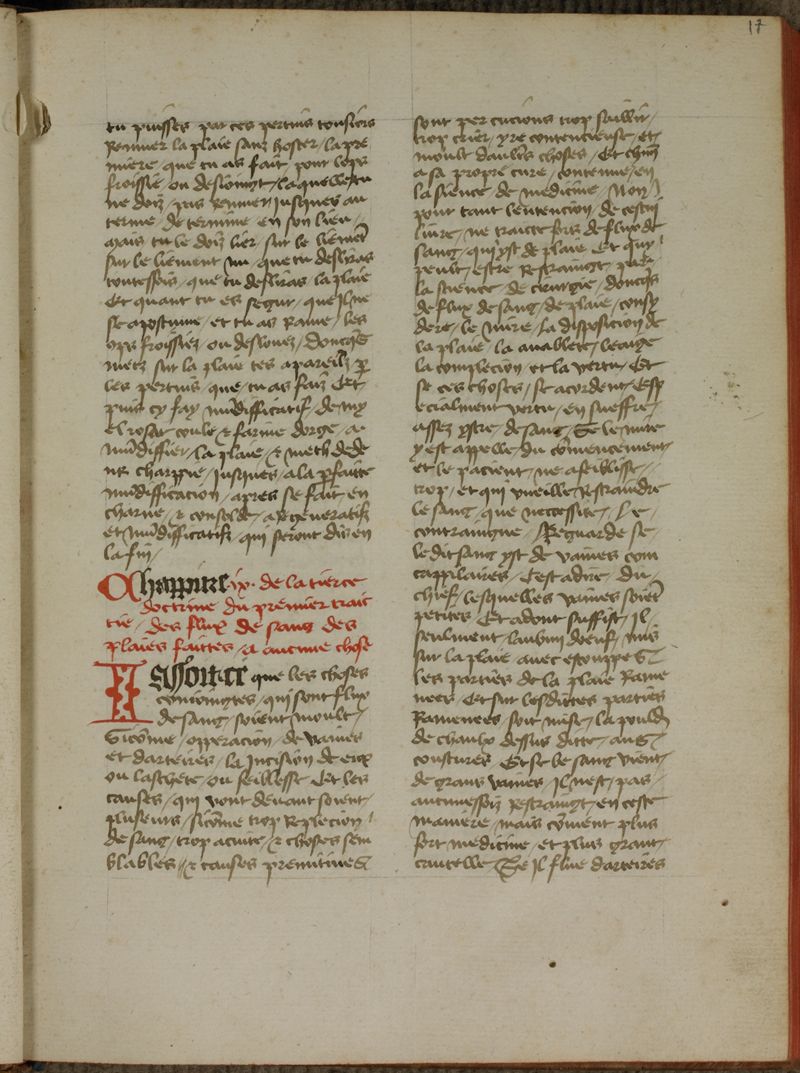 17
tu puisses par ces pertuis tousiors
Remuer la plaie sanz hoster / la pre
miere / que tu as fait pour lops
froissie / ou desioingt / laquelle tu
ne dois / pas Remuer iusques au
terme / de termine en son lieu /
mais tu le dois lier / sur le liement
sur le liement un / que tu desliras
toutessois / que tu desliras / la plaie
Et quant tu es segur / que il ne
se apostume / et tu as Rame / les
ops froissiez / ou deslouez / doncqs
metz sur la plaie tes apareilz / p
les pertuis / que / tu as faiz Et /
puis cy fay / mundifficatif / de my
el rosat coule / & farine dorge / a
mundiffier / la plaie / & meth dede
nz charppie / iusques / a la pfaitte
mundifficacion / apres se fait en
charne / & consolde / a Regeneratifz
et mundifficatifz / qui seront diz en
la fin /
Chappitre ix. de la tierce
doctrine du premier trait
tie / des flux de sang des
plaies faittes / a aucune chose
Il assouuient que les choses
comoingtes / qui sont flux
de sang / soient moult /
Si come / opperacion / de vaines
et darteires / la Incision de eux
ou laschete / ou feiblesse Et les
causes / qui vont deuant soient /
plusieurs / si come trop Replecion /
de sang / trop acuite / & choses sem
blables / & causes premitiues
sont percucions trop saillir /
trop crier / yre contencieuse et /
moult daultres choses / Et chun
a sa propre cure / contenue / en
la sience de medicine / Non /
pour tant lentencion / de cestui
liure / ne traicte fors de flux de
sang / qui yst de plaie Et qui /
peult / estre Restraingt / par /
la science / de cirurgie / doncqs
de flux de sang / de plaie / consy
dere / le mire / la disposicion de
la plaie / la quallete / leaige
la complecion / et la vertu / Et
se ces choses / se acordent / Esp
ecialment vertu / en sueffre /
assez ystre / de sang / Se le mire
y est appelle / du commencement /
et le pacient / ne afeiblisse /
trop / et qui vueille Restraindre
le sang / que neccessite / le
contraingne / Reguarde se
le dit sang yst de vaines com
cappilaires / Cest adire / du /
chief / lesquelles vaines soient
petites / Et adont suffist / Il /
seulment / laubun doeuf / mis
sur la plaie / auec estouppes
les parties de la plaie Rame
nees / Et sur lesdittes parties
Ramenees / soit mise / la pouldre
de chaulx dessus ditte / aus
coustures / Et se le sang vient /
de grans vaines / Il nest / pas /
aucunessois Restraingt / en ceste
maniere / mais conuient plus
fort medicine / et plus grant /
cautelle Se il flue darteires